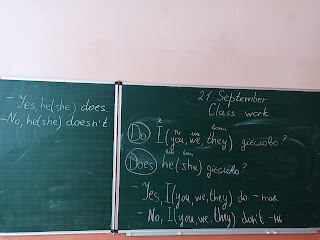 - Yes, he(she) does
- No, he(she) doesn't
21 September
Class work
я ти ми вони
Do I (you, we, they) дієслово?
він вона
Does he (she) дієслово?
- Yes, I (you, we, they) do - так
- No, I (you, we, they) don't - ні